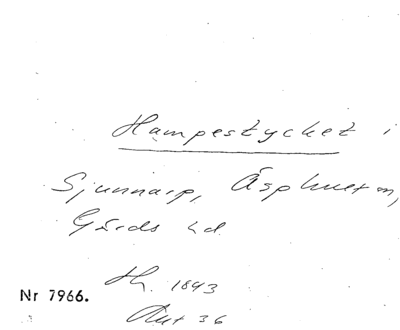 Hampestycket i
Sjunnarp, Äsphult sn,
Gärds hd
Nr 7966.
Th. 1843
Akt 36